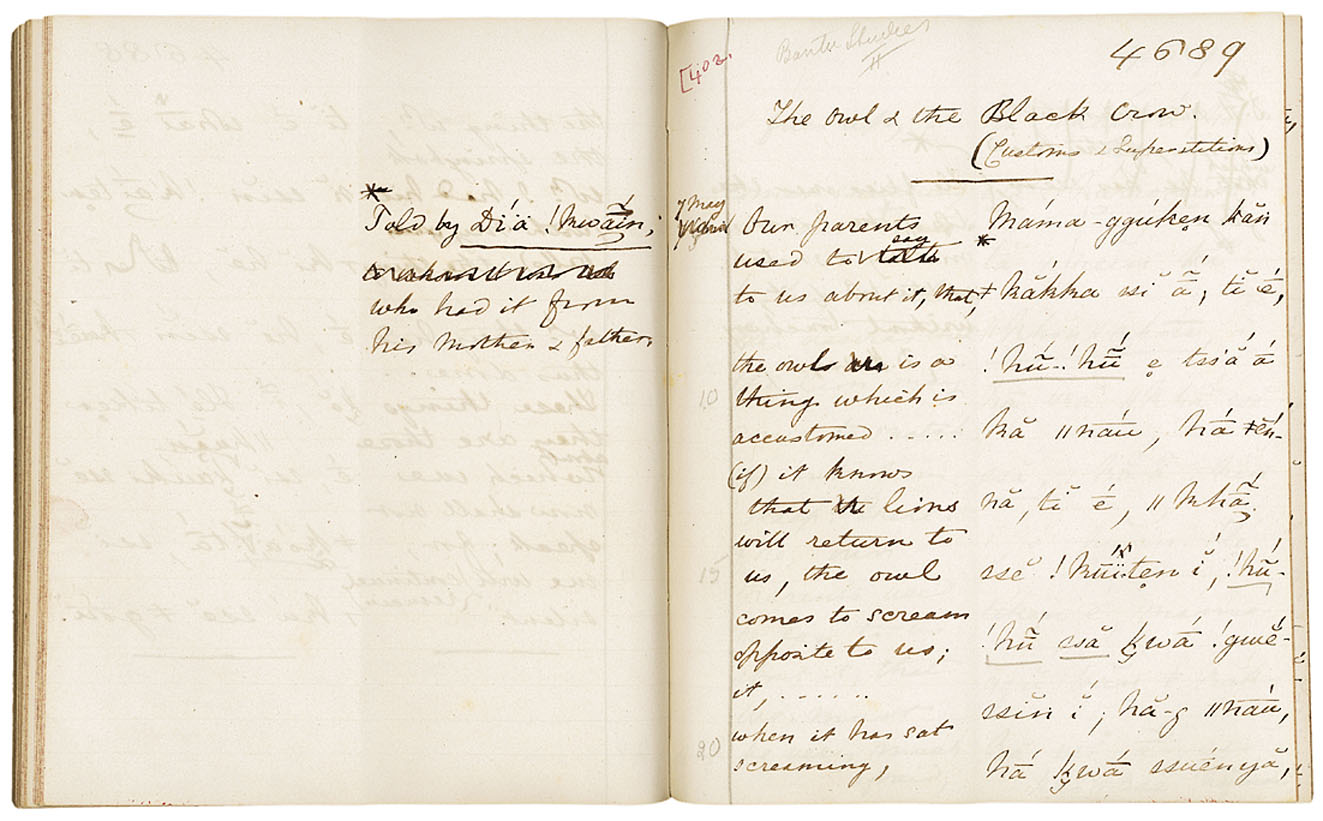 *
Told by Díä !kwãin,
who had it from
his mother & fathers
[402.
Bantu Studies
II
4689
The Owl & the Black Crow.
(Customs & Superstitions)
7 May
Our parents
used to say
to us about it, that,
the owl is a
thing which is
accustomed .....
(if) it knows
that lions
will return to
us, the owl
comes to scream
opposite to us;
it, .......
when it has sat
screaming,
10
15
20
Máma-ggúkẹn kăn
* kăkka si ã́, tĭ é,
!hṹ-!hṹ ẹ tssă á
kă ǁnáu, há
nă, tĭ é, ǁkhã́
ssĕ ĭ, !hṹ-
!hṹ să k̬wá !gwĕ-
ssĭn ĭ; hă-g ǁnáu,
há k̬wá ssuényă,